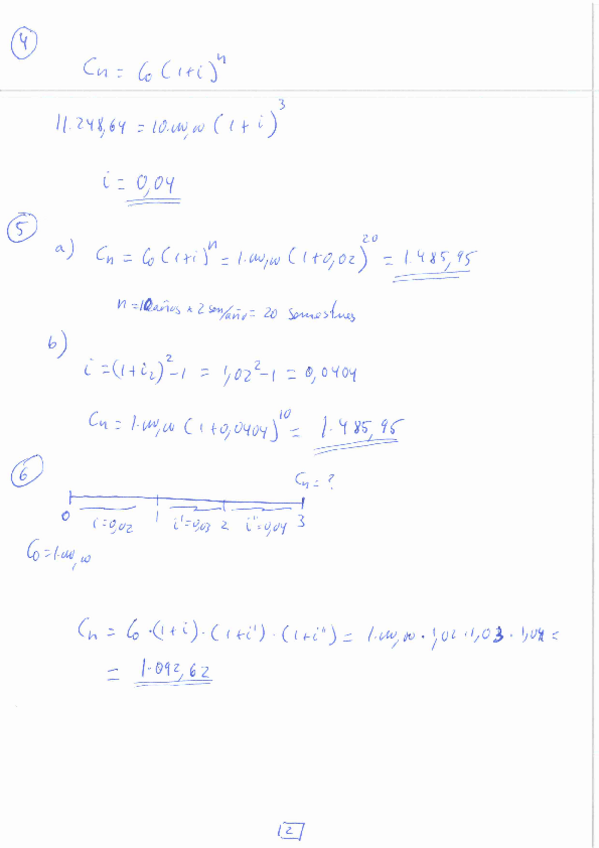 4
Cn = Co (1+i)^n
11.248,64 = 10.000,00 (1+i)^3
i = 0,04
5
a) Cn = Co (1+i)^n = 1.000,00 (1+0,02)^20 = 1.485,95
n = 10 años x 2 sem/año = 20 semestres
b)
i = (1+i₂)^2 - 1 = 1,02^2 - 1 = 0,0404
Cn = 1.000,00 (1+0,0404)^10 = 1.485,95
6
Cn = ?
0 i=0,02 1 i'=0,03 2 i''=0,04 3
Co = 1.000,00
Cn = Co · (1+i) · (1+i') · (1+i'') = 1.000,00 · 1,02 · 1,03 · 1,04 =
= 1.092,62
2